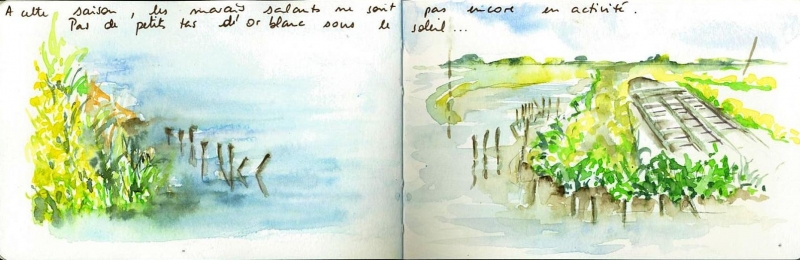 A cette saison, les marais salants ne sont pas encore en activité.
Pas de petits tas d'Or blanc sous le soleil...